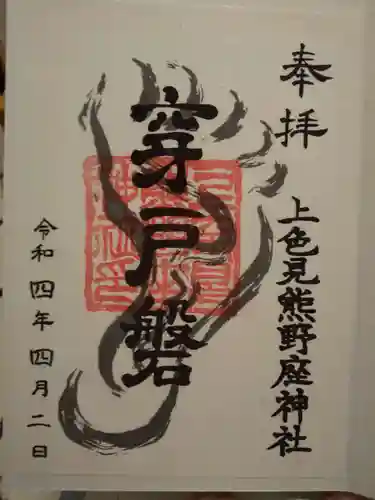 奉拝
上色見熊野座神社
穿戸磐
令和四年四月二日